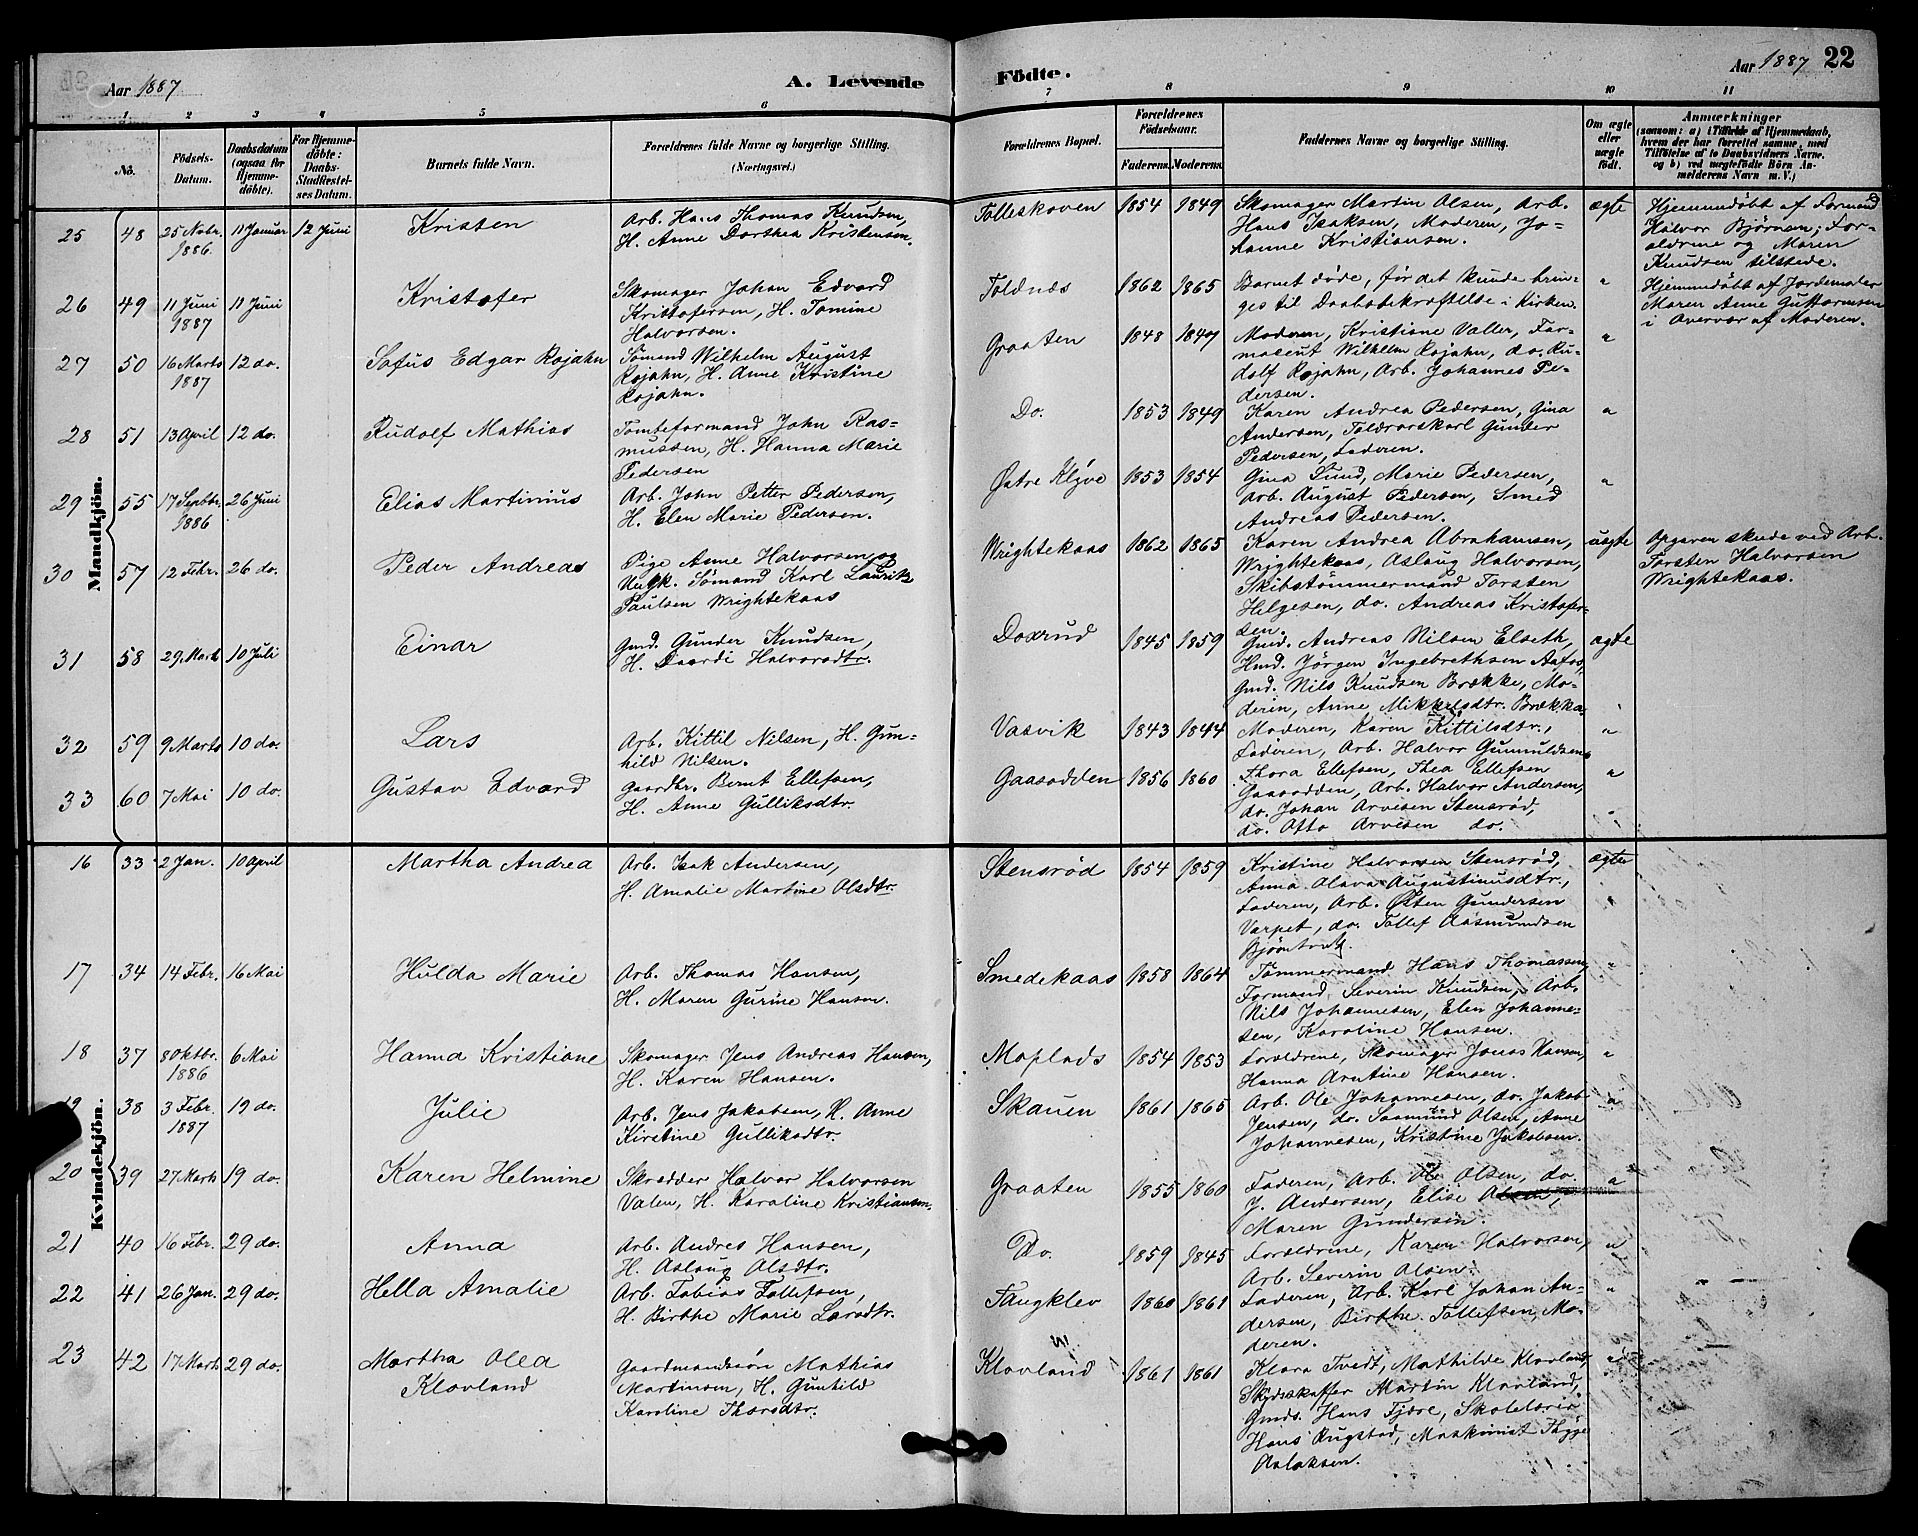 Aar 1887
A. Levende
Födte.
Aar 1887
22
1 2 3 4 5 6 7 8 9 10 11
No.
Födsels-
Datum.
Daabsdatum
(ogsaa for
Hjemme-
döbte).
For Hjemme-
döbte:
Daabs-
Stadfæstel-
ses Datum.
Barnets fulde Navn.
Forældrenes fulde Navne og borgerlige Stilling.
(Næringsvei.)
Forældrenes Bopæl.
Forældrenes
Födselsaar.
Faderens. Moderens.
Faddernes Navne og borgerlige Stilling.
Om ægte
eller
uægte
födt.
Anmærkninger
(saasom: a) i Tilfælde af Hjemmedaab,
hvem der har forrettet samme, med
Tilföielse af to Daabsvidners Navne,
og b) ved uægtefödte Börn An-
melderens Navn m. V.)
Mandkjön.
25 48 25 Novbr. 1886. 11 Januar 12 Juni Kristen
Arb. Hans Thomas Knudsen,
H. Anne Dorthea Kristensen.
Tolleskoven 1854 1849
Skomager Martin Olsen, Arb.
Hans Isaksen, Moderen, Jo-
hanne Kristiansen.
ægte
Hjemmedøbt af Formand
Halvor Bjørnsen; For-
ældrene og Maren
Knudsen tilstede.
26 49 11 Juni 1887 11 Juni Kristofer
Skomager Johan Edvard
Kristofersen, H. Tomine
Halvorsen.
Toldnæs 1862 1865
Barnet døde, før det kunde brin-
ges til Daabsbekræftelse i Kirken.
"
Hjemmedøbt af Jordemoder
Maren Anne Guttormsen
i Overvær af Moderen.
27 50 16 Marts 1887 12 do. Sofus Edgar Rojahn
Sømand Wilhelm August
Rojahn, H. Anne Kristine
Rojahn.
Graaten 1848 1849
Moderen, Kristiane Valler, Far-
maceut Wilhelm Rojahn, do. Ru-
dolf Rojahn, Arb. Johannes Pe-
dersen.
"
28 51 13 April 12 do. Rudolf Mathias
Tomteformand John Ras-
mussen, H. Hanna Marie
Pedersen
Do. 1853 1849
Karen Andrea Pedersen, Gina
Andersen, Toldrorskarl Gunder
Pedersen, Faderen.
"
29 55 17 Septbr. 1886 26 Juni Elias Martinius
Arb. John Petter Pedersen,
H. Elen Marie Pedersen.
Østre Klyve 1853 1854
Gina Lund, Marie Pedersen,
Arb. August Pedersen, Smed
Andreas Pedersen.
"
30 57 12 Febr. 26 do. Peder Andreas
Pige Anne Halvorsen og
Ungk. Sømand Karl Lauritz
Paulsen Wrightekaas
Wrightekaas 1862 1865
Karen Andrea Abrahamsen,
Wrightekaas, Aslaug Halvorsen,
Skibstømmermand Torsten
Helgesen, do. Andreas Kristofer-
sen.
uægte
Opgaven skede ved Arb.
Torsten Halvorsen
Wrightekaas.
31 58 29 Marts 10 Juli Einar
Gmd. Gunder Knudsen,
H. Daardi Halvorsdtr.
Doxrud 1845 1859
Gmd. Andreas Nilsen Elseth,
Hmd. Jörgen Ingebrethsen Aafos,
Gmd. Nils Knudsen Brække, Mo-
deren, Anne Mikkelsdtr. Brække.
ægte
32 59 9 Marts 10 do. Lars
Arb. Kittil Nilsen, H. Gun-
hild Nilsen.
Vasvik 1843 1844
Moderen, Karen Kittilsdtr.,
Faderen, Arb. Halvor Gunnuldsen.
"
33 60 7 Mai 10 do. Gustav Edvard
Gaardbr. Bernt Ellefsen,
H. Anne Gulliksdtr.
Gaasodden 1856 1860
Thora Ellefsen, Thea Ellefsen
Gaasodden, Arb. Halvor Andersen,
do. Johan Arvesen Stensrød,
do. Otto Arvesen do.
"
Kvindekjön.
16 33 2 Jan. 10 April Martha Andrea
Arb. Isak Andersen,
H. Amalie Martine Olsdtr.
Stensrød 1854 1859
Kristine Halvorsen Stensrød,
Anna Olava Augustinusdtr.,
Faderen, Arb. Østen Gundersen
Varpet, do. Tollef Aasmundsen
ægte
17 34 14 Febr. 16 Mai Hulda Marie
Arb. Thomas Hansen,
H. Maren Gurine Hansen.
Smedekaas 1858 1864
Tømmermand Hans Thomassen,
Formand Severin Knudsen, Arb.
Nils Johannesen, Elen Johanne-
sen, Karoline Hansen.
"
18 37 8 Oktbr. 1886 6 Mai Hanna Kristiane
Skomager Jens Andreas Hansen,
H. Karen Hansen.
Moplads 1854 1853
Forældrene, Skomager Jonas Hansen,
Hanna Arntine Hansen.
"
19 38 3 Febr. 1887 19 do. Julie
Arb. Jens Jakobsen, H. Anne
Kirstine Gulliksdtr.
Skauen 1861 1865
Arb. Ole Johannesen, do. Jakob
Jensen, do. Saamund Olsen, Anne
Johannesen, Kristine Jakobsen.
"
20 39 27 Marts 19 do. Karen Helmine
Skrædder Halvor Halvorsen
Valen, H. Karoline Kristiansen.
Graaten 1855 1860
Faderen, Arb. Ole Olsen, do.
J. Andersen, Elise Olsen,
Maren Gundersen.
"
21 40 16 Febr. 29 do. Anna
Arb. Andres Hansen,
H. Aslaug Olsdtr.
Do. 1859 1845
Forældrene, Karen Halvorsen,
Arb. Severin Olsen.
"
22 41 26 Jan. 29 do. Hella Amalie
Arb. Tobias Tollefsen,
H. Birthe Marie Larsdtr.
Taugklev 1860 1861
Faderen, Arb. Karl Johan An-
dersen, Birthe Tollefsen, Mo-
deren.
"
23 42 17 Marts 29 do. Martha Olea
Klovland
Gaardmandssön Mathias
Martinsen, H. Gunhild
Karoline Thorsdtr.
Klovland 1861 1861
Klara Tvedt, Mathilde Klovland,
Skydsskaffer Martin Klovland,
Gmds. Hans Fjære, Skolelærer
Hans Rugstad, Maskinist Thygge
Aslaksen.
"